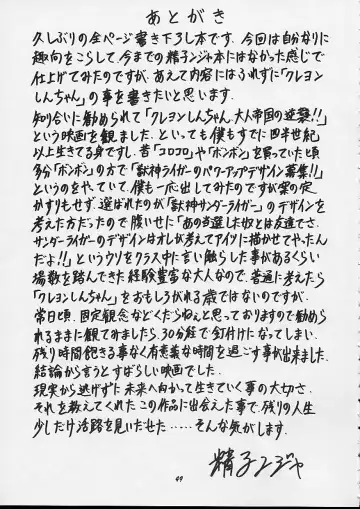 あとがき
久しぶりの全ページ書き下ろし本です。今回は自分なりに
趣向をこらして今までの精子ンジャ本にはなかった感じで
仕上げてみたのですが、あえて内容にはふれずに「クレヨン
しんちゃん」の事を書きたいと思います。
知り合いに勧められて「クレヨンしんちゃん、大人帝国の逆襲!!」
という映画を観ました。といっても僕もすでに四半世紀
以上生きてる身ですし、昔「コロコロ」や「ボンボン」を買っていた頃
多分「ボンボン」の方で「獣神ライガーのパワーアップデザイン募集!!」
というのをやっていて、僕も一応出してみたのですが案の定
かすりもせず、選ばれたのが「獣神サンダーライガー」のデザインを
考えた方だったので腹いせに「あの当選した奴とは友達でさ、
サンダーライガーのデザインはオレが考えてアイツに描かせてやったん
だよ!!」というウソをクラス中に言い触らした事があるくらい
場数を踏んできた経験豊富な大人なので、普通に考えたら
「クレヨンしんちゃん」をおもしろがれる歳ではないのですが、
常日頃、固定観念などくだらねえと思っておりますので勧めら
れるままに観てみましたら、30分経で釘付けになってしまい、
残り時間飽きる事なく有意義な時間を過ごす事が出来ました。
結論から言うとすばらしい映画でした。
現実から逃げずに未来へ向かって生きていく事の大切さ、
それを教えてくれたこの作品に出会えた事で、残りの人生
少しだけ活路を見いだせた‥‥‥そんな気がします。
精子ンジャ
49